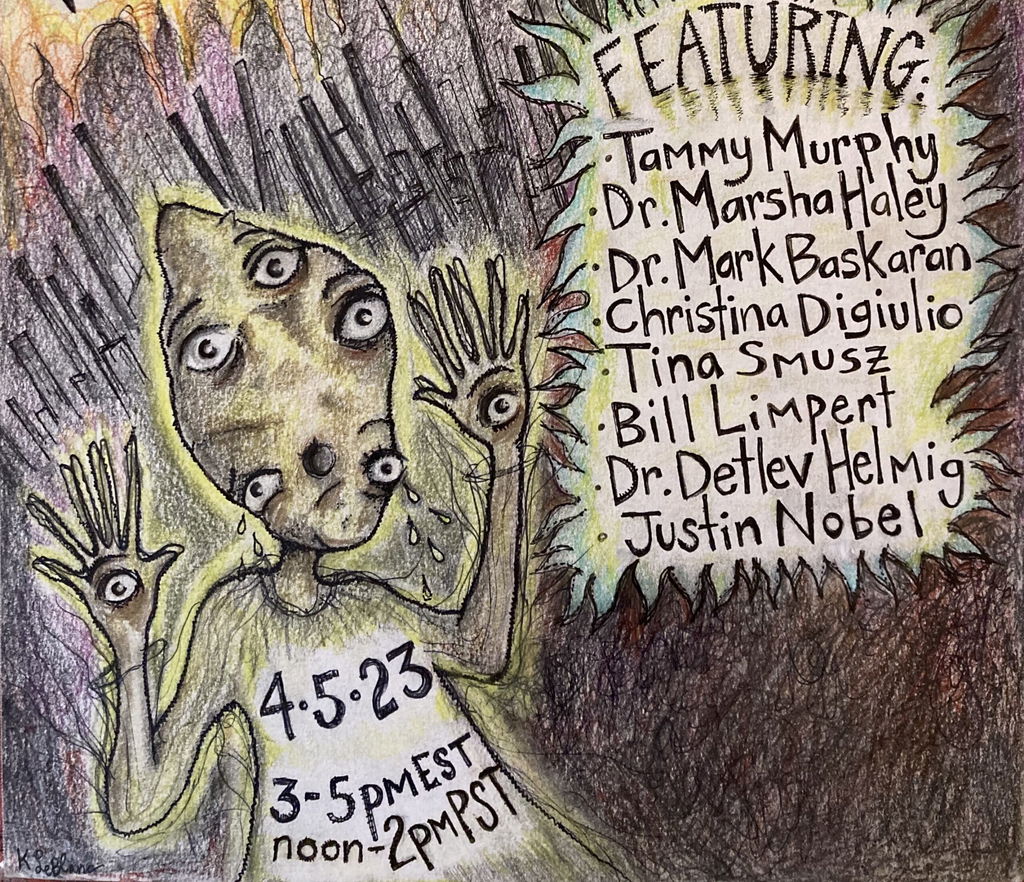 FEATURING:
·Tammy Murphy
·Dr. Marsha Haley
·Dr. Mark Baskaran
·Christina Digiulio
·Tina Smusz
·Bill Limpert
·Dr. Detlev Helmig
·Justin Nobel
4·5·23
3-5pm EST
noon-2pm PST
K LeBlanc